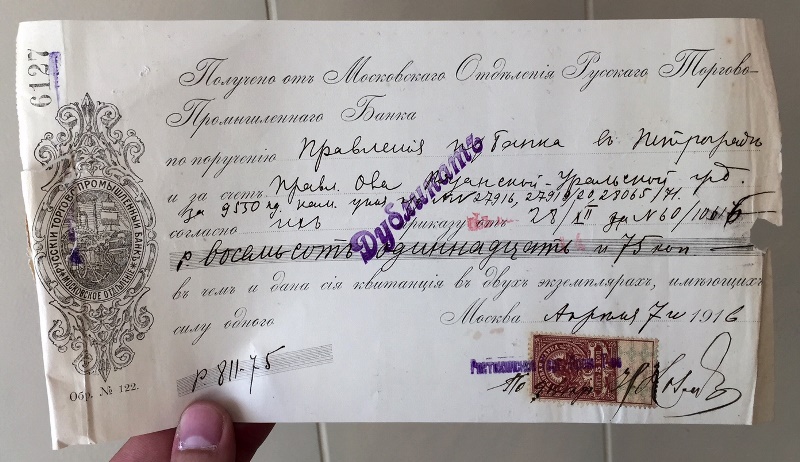 6127
Получено отъ Московскаго Отдѣленія Русскаго Торгово-
Промышленнаго Банка
по порученію Правленія Банка въ Петроградѣ
и за счетъ Правл. О-ва Казанской-Уральской
за 9550 27916, 27919/20, 28065/71.
согласно ихъ приказу отъ 28/XII за № 60/
Дубликатъ
р. восемьсотъ одиннадцать и 75 коп. —
въ чемъ и дана сія квитанція въ двухъ экземплярахъ, имѣющихъ
силу одного
Москва Апрѣля 7 1916
р. 811-75
РУССКІЙ ТОРГОВО-ПРОМЫШЛЕННЫЙ БАНКЪ
МОСКОВСКОЕ ОТДѢЛЕНІЕ
Обр. № 122.